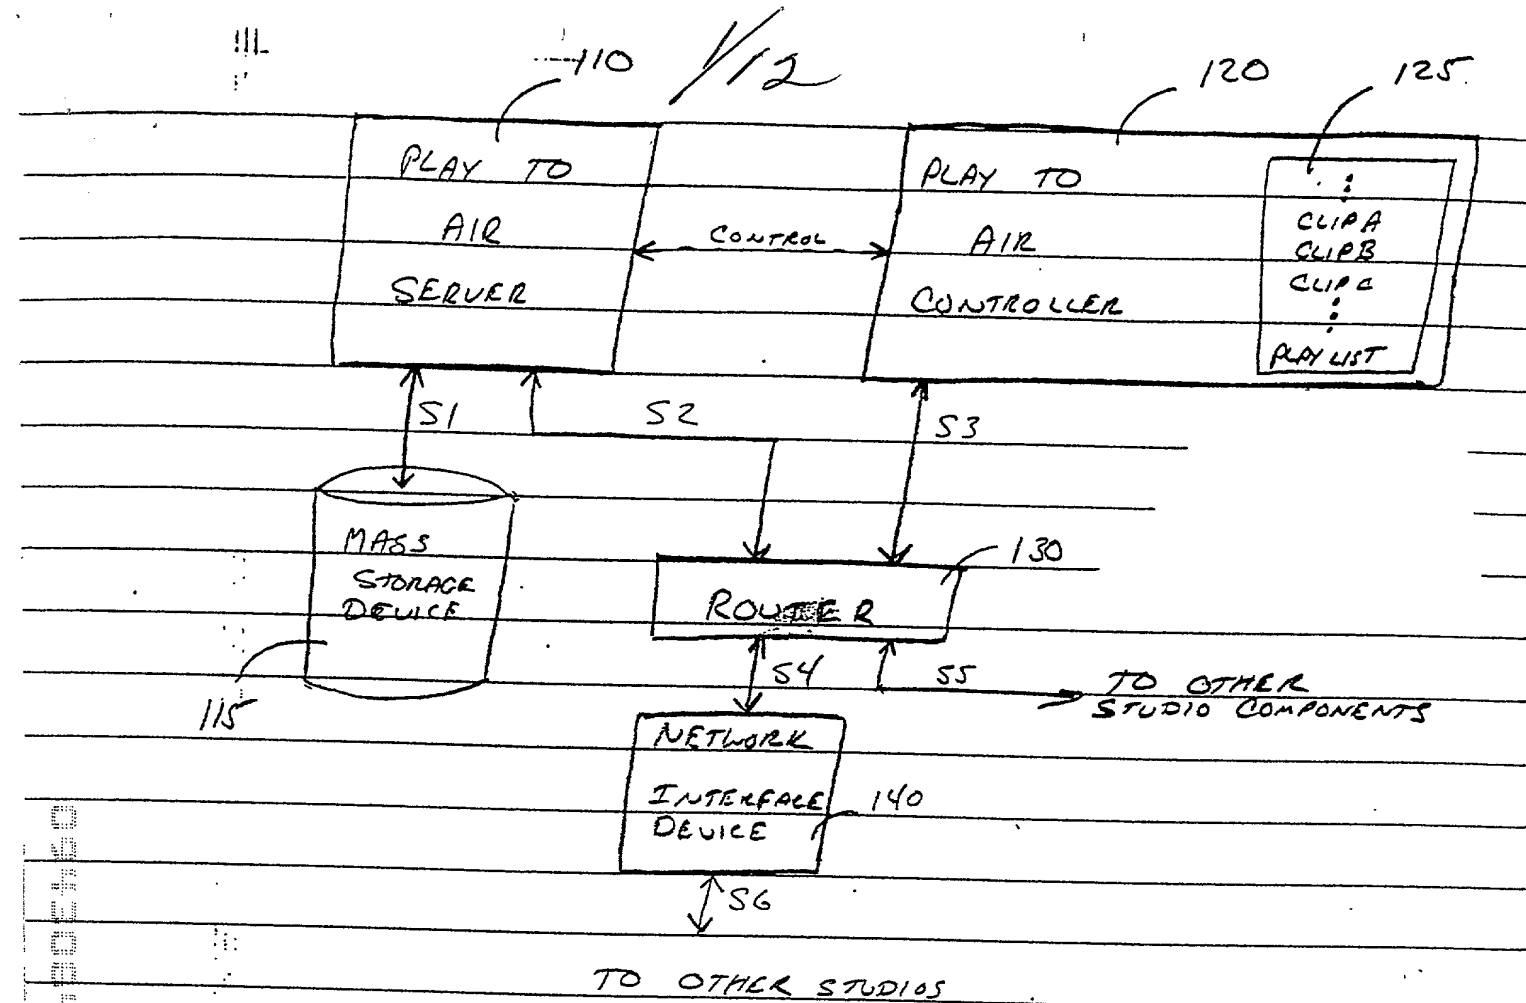 1/12
110
120
125
PLAY TO
AIR
SERVER
CONTROL
PLAY TO
AIR
CONTROLLER
CLIP A
CLIP B
CLIP C
PLAY LIST
S1
S2
S3
MASS
STORAGE
DEVICE
115
130
ROUTER
S4
S5
TO OTHER
STUDIO COMPONENTS
NETWORK
INTERFACE
DEVICE
140
S6
TO OTHER STUDIOS